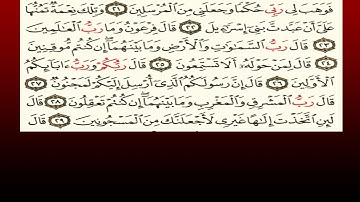 فَوَهَبَ لِي رَبِّي حُكْمًا وَجَعَلَنِي مِنَ الْمُرْسَلِينَ ٢١ وَتِلْكَ نِعْمَةٌ تَمُنُّهَا
عَلَيَّ أَنْ عَبَّدتَّ بَنِي إِسْرَائِيلَ ٢٢ قَالَ فِرْعَوْنُ وَمَا رَبُّ الْعَالَمِينَ
٢٣ قَالَ رَبُّ السَّمَاوَاتِ وَالْأَرْضِ وَمَا بَيْنَهُمَا إِن كُنتُم مُّوقِنِينَ
٢٤ قَالَ لِمَنْ حَوْلَهُ أَلَا تَسْتَمِعُونَ ٢٥ قَالَ رَبُّكُمْ وَرَبُّ آبَائِكُمُ
الْأَوَّلِينَ ٢٦ قَالَ إِنَّ رَسُولَكُمُ الَّذِي أُرْسِلَ إِلَيْكُمْ لَمَجْنُونٌ ٢٧
قَالَ رَبُّ الْمَشْرِقِ وَالْمَغْرِبِ وَمَا بَيْنَهُمَا إِن كُنتُمْ تَعْقِلُونَ ٢٨ قَالَ
لَئِنِ اتَّخَذْتَ إِلَٰهًا غَيْرِي لَأَجْعَلَنَّكَ مِنَ الْمَسْجُونِينَ ٢٩ قَالَ